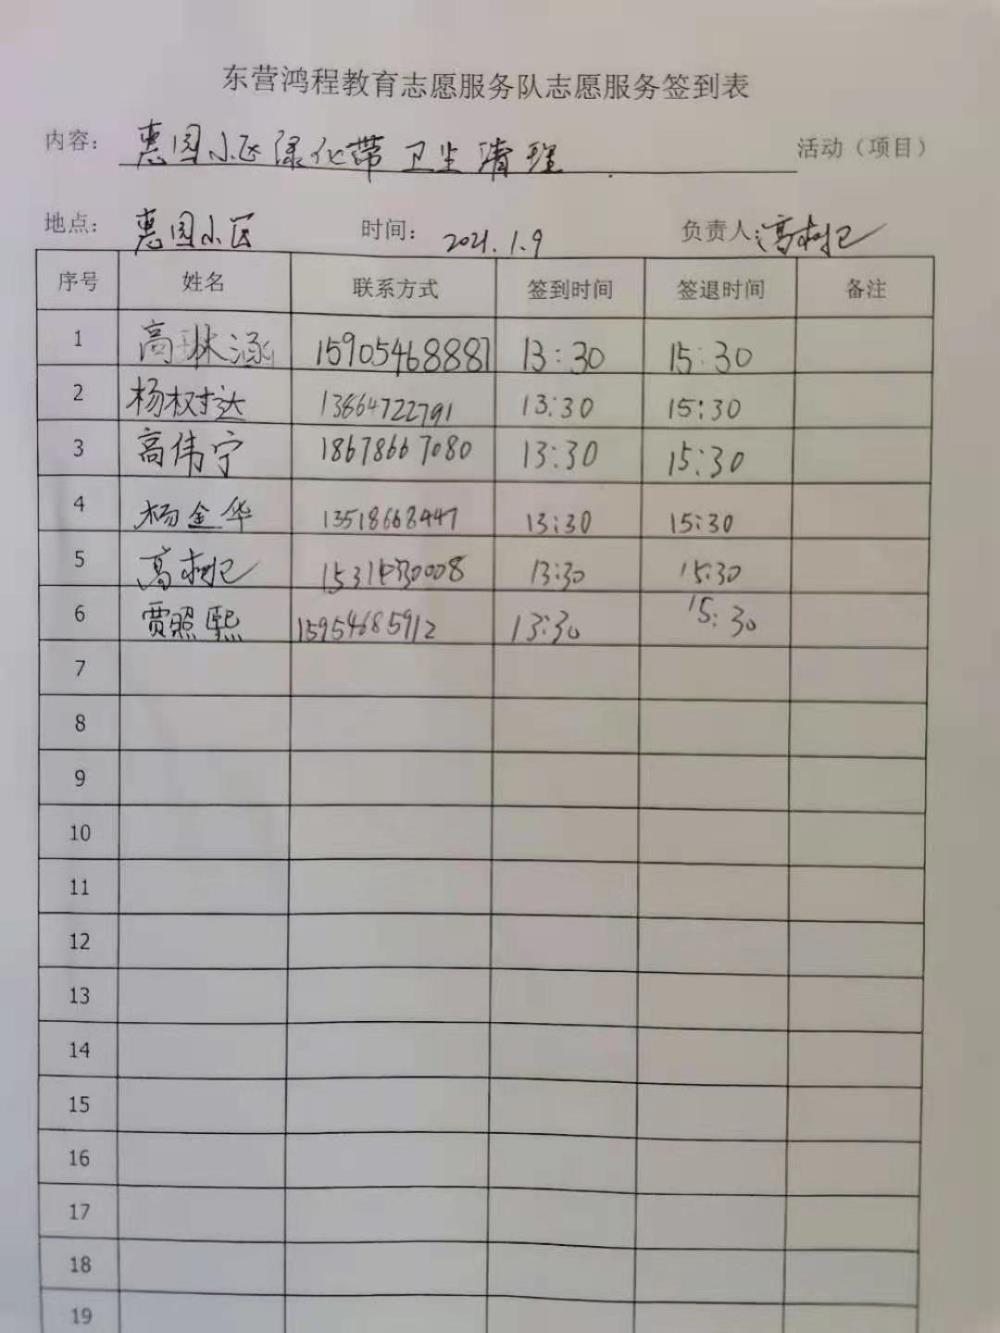 东营鸿程教育志愿服务队志愿服务签到表
内容: 惠园小区绿化带卫生清理 活动（项目）
地点: 惠园小区 时间: 2021.1.9 负责人: 高
序号 姓名 联系方式 签到时间 签退时间 备注
1 高琳涵 15905468887 13:30 15:30
2 杨树达 13864722791 13:30 15:30
3 高伟宁 18678667080 13:30 15:30
4 杨金华 13518668447 13:30 15:30
5 高 13:30 15:30
6 贾照熙 15954685912 13:30 15:30
7
8
9
10
11
12
13
14
15
16
17
18
19